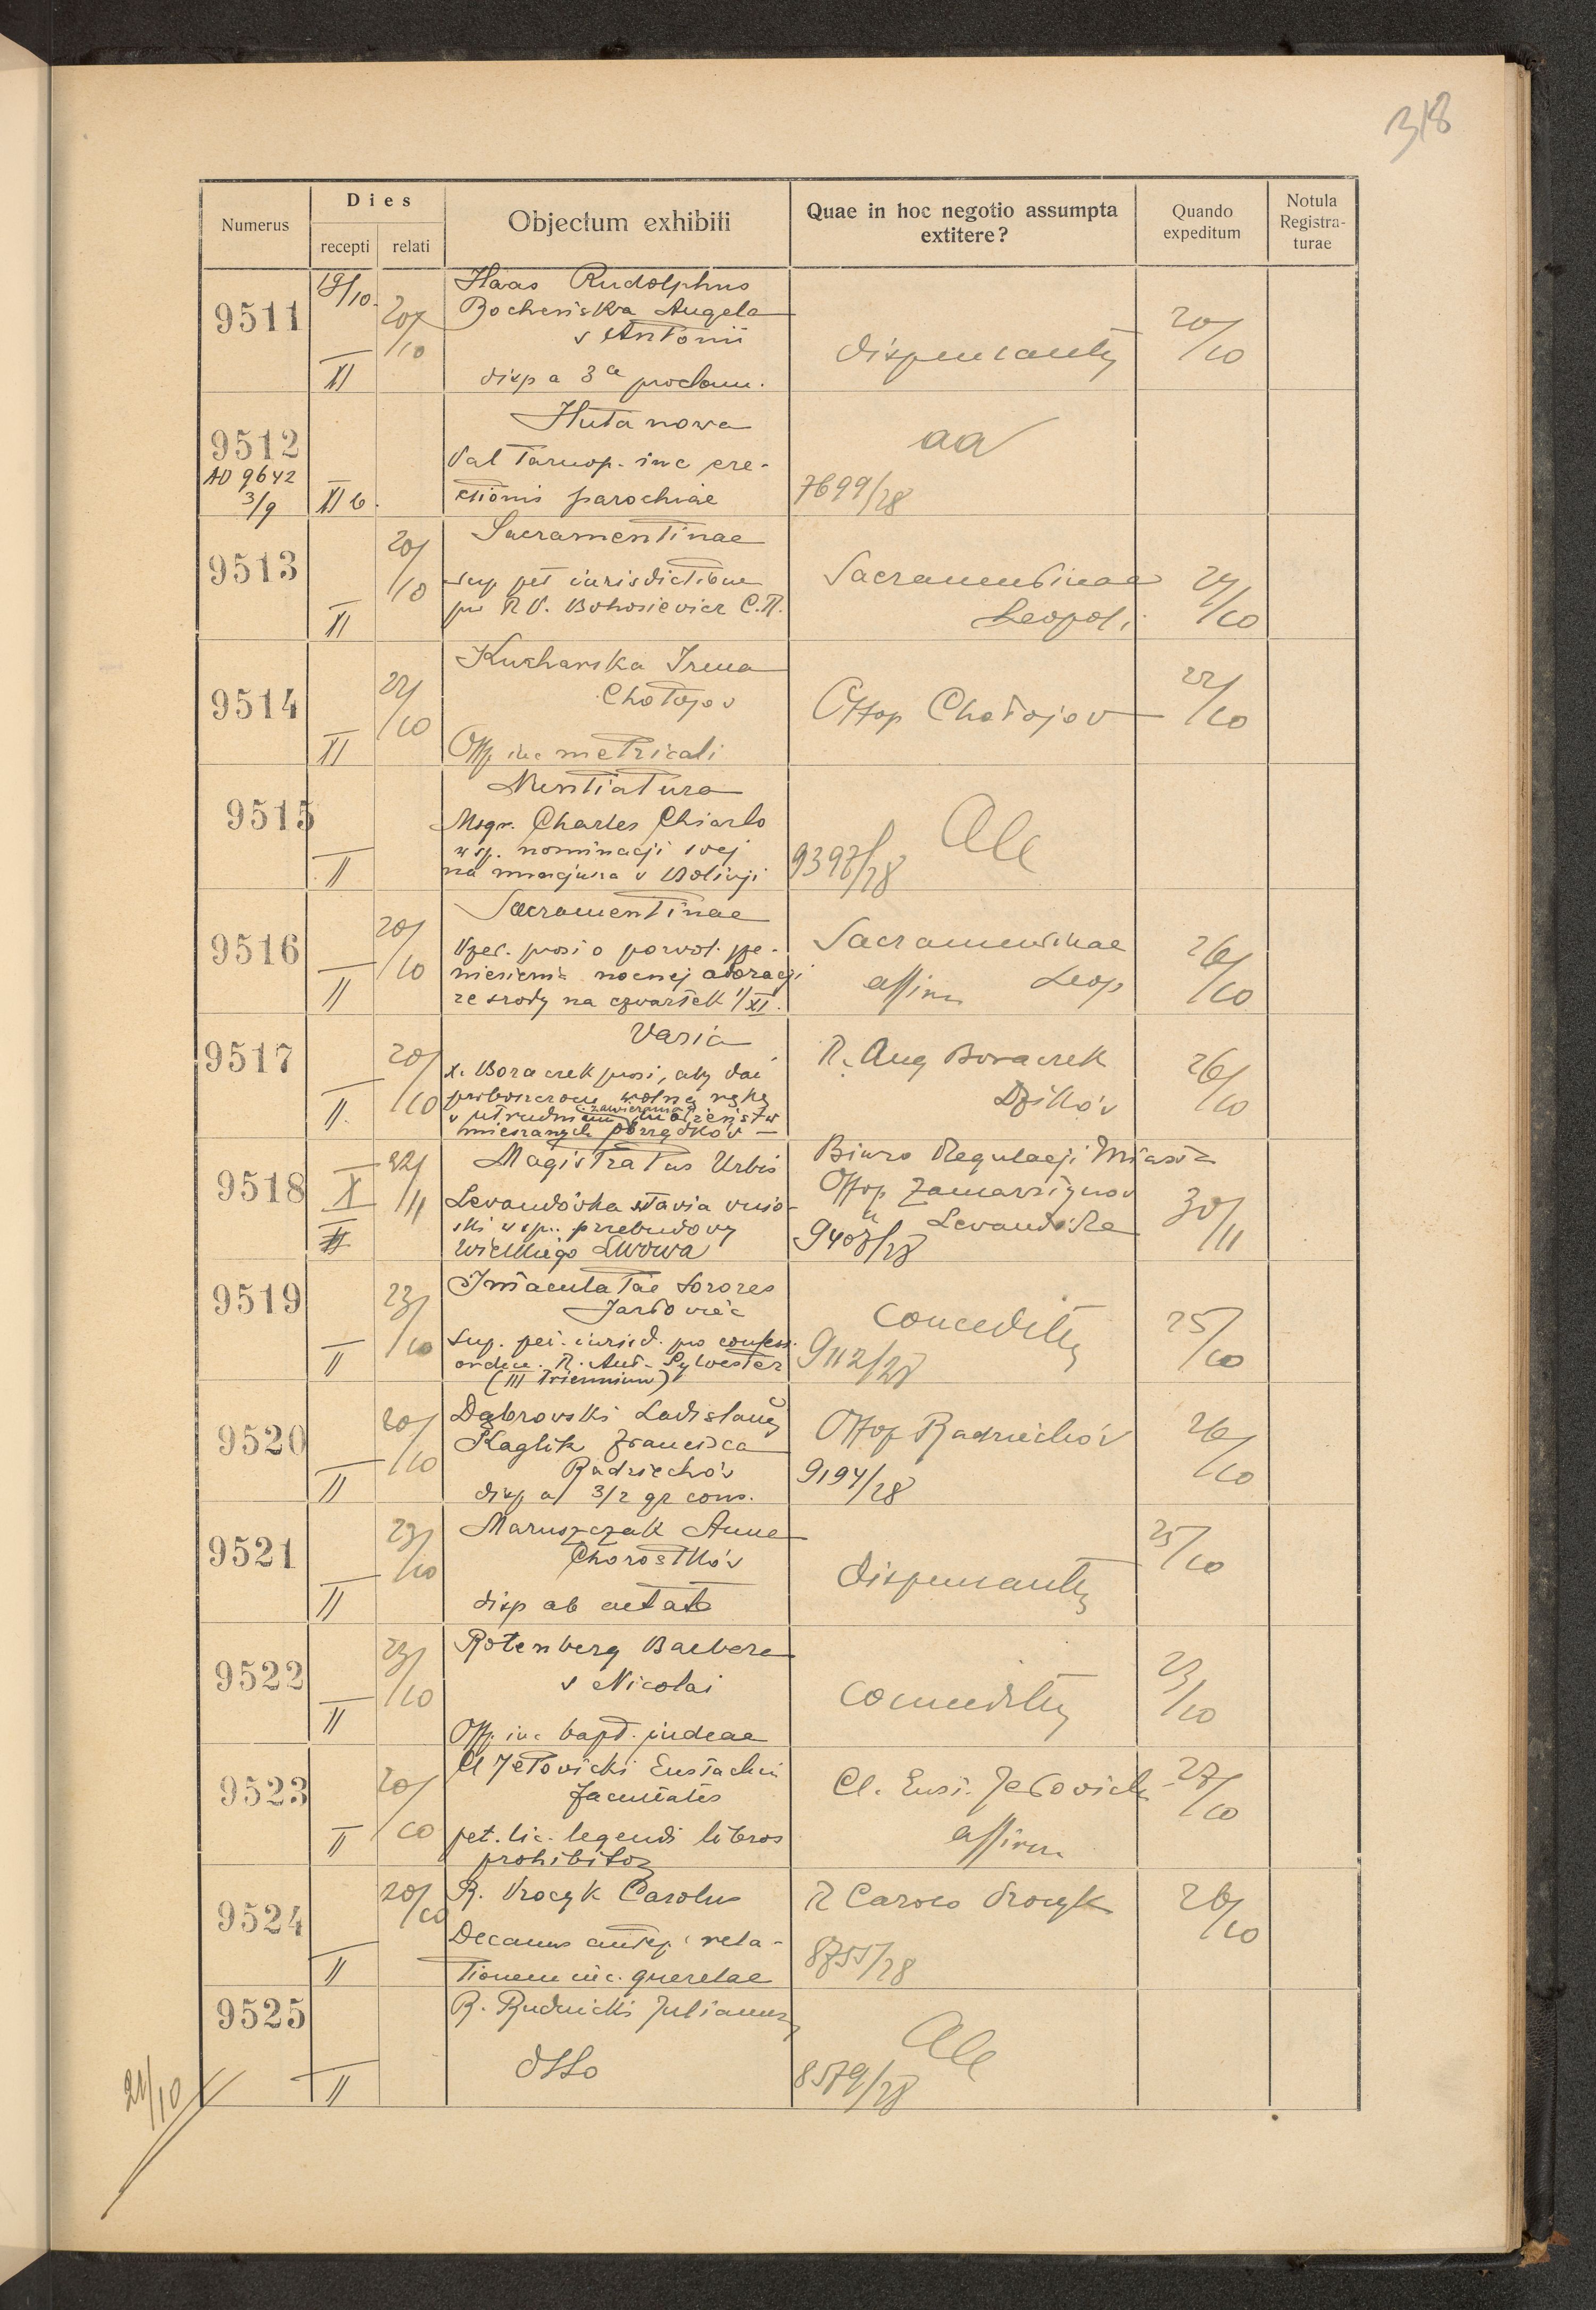 318
Numerus
Dies
recepti
relati
Objectum exhibiti
Quae in hoc negotio assumpta extitere?
Quando expeditum
Notula Registra-turae
9511
19/10.
20/10
XI
Haas Rudolphus
Bocheńska Angela
s Antonii
disp a 3a proclam.
dispensantur
20/10
9512
AD 9642
3/9
XI b.
Huta nowa
Val Tarnop. inc ere-
ctionis parochiae
aa
7699/28
9513
20/10
II
Sacramentinae
sup pet iurisdictione
pro R V. Bohosievicz C.R.
Sacramentinae
Leopoli
24/10
9514
22/10
XI
Kucharska Irena
Chołojov
Offp inc metricali
Offop Chołojov
22/10
9515
II
Nuntiatura
Msgr. Charles Chiarlo
w sp. nominacji svej
na nuncjusza v Bolivji
Ale
9397/28
9516
20/10
II
Sacramentinae
Vzet. prosi o pozvol. prze-
niesienia nocnej adoracji
ze środy na czwartek 1/XI.
Sacramentinae
affirm Leop
26/10
9517
20/10
II.
Varia
X. Boraczek prosi, aby dać
proboszczom wolną rękę
v utrudnianiu zawierania małżeństw
mieszanych obrządków —
R. Aug Boraczek
Dzików
26/10
9518
X
22/11
II
Magistratus Urbis
Levandówka stavia vnio-
ski w sp. przebudovy
wielkiego Lwowa
Biuro Regulacji Miasta
Offop Zamarstynov
" Levandówka
9408/28
30/11
9519
23/10
II
Imaculatae Sorores
Jazłoviec
Sup. pet. iurisd. pro confess.
ordin. R. Ant. Sylvester
(III Triennium)
conceditur
9112/28
25/10
9520
20/10
II
Dąbrovski Ladislaus
Kaglik Francisca
Radziechóv
disp a/ 3/2 gr cons.
Offop Radziechóv
9194/28
26/10
9521
23/10
II
Maruszczak Anna
Chorostkóv
disp ab aetate
dispensantur
25/10
9522
23/10
II
Rotenberg Barbara
s Nicolai
Offp inc bapt. judeae
conceditur
23/10
9523
20/10
II
Cl Jełovicki Eustachii
facultates
pet. lic. legendi libros
prohibitos
Cl. Eust. Jełovicki
affirm
27/10
9524
20/10
II
R. Procyk Carolus
Decanus antep. rela-
tionem inc. querelae
R Carolo Procyk
8755/28
26/10
9525
II
R. Rudnicki Julianus
dtto
Ale
8579/28
21/10